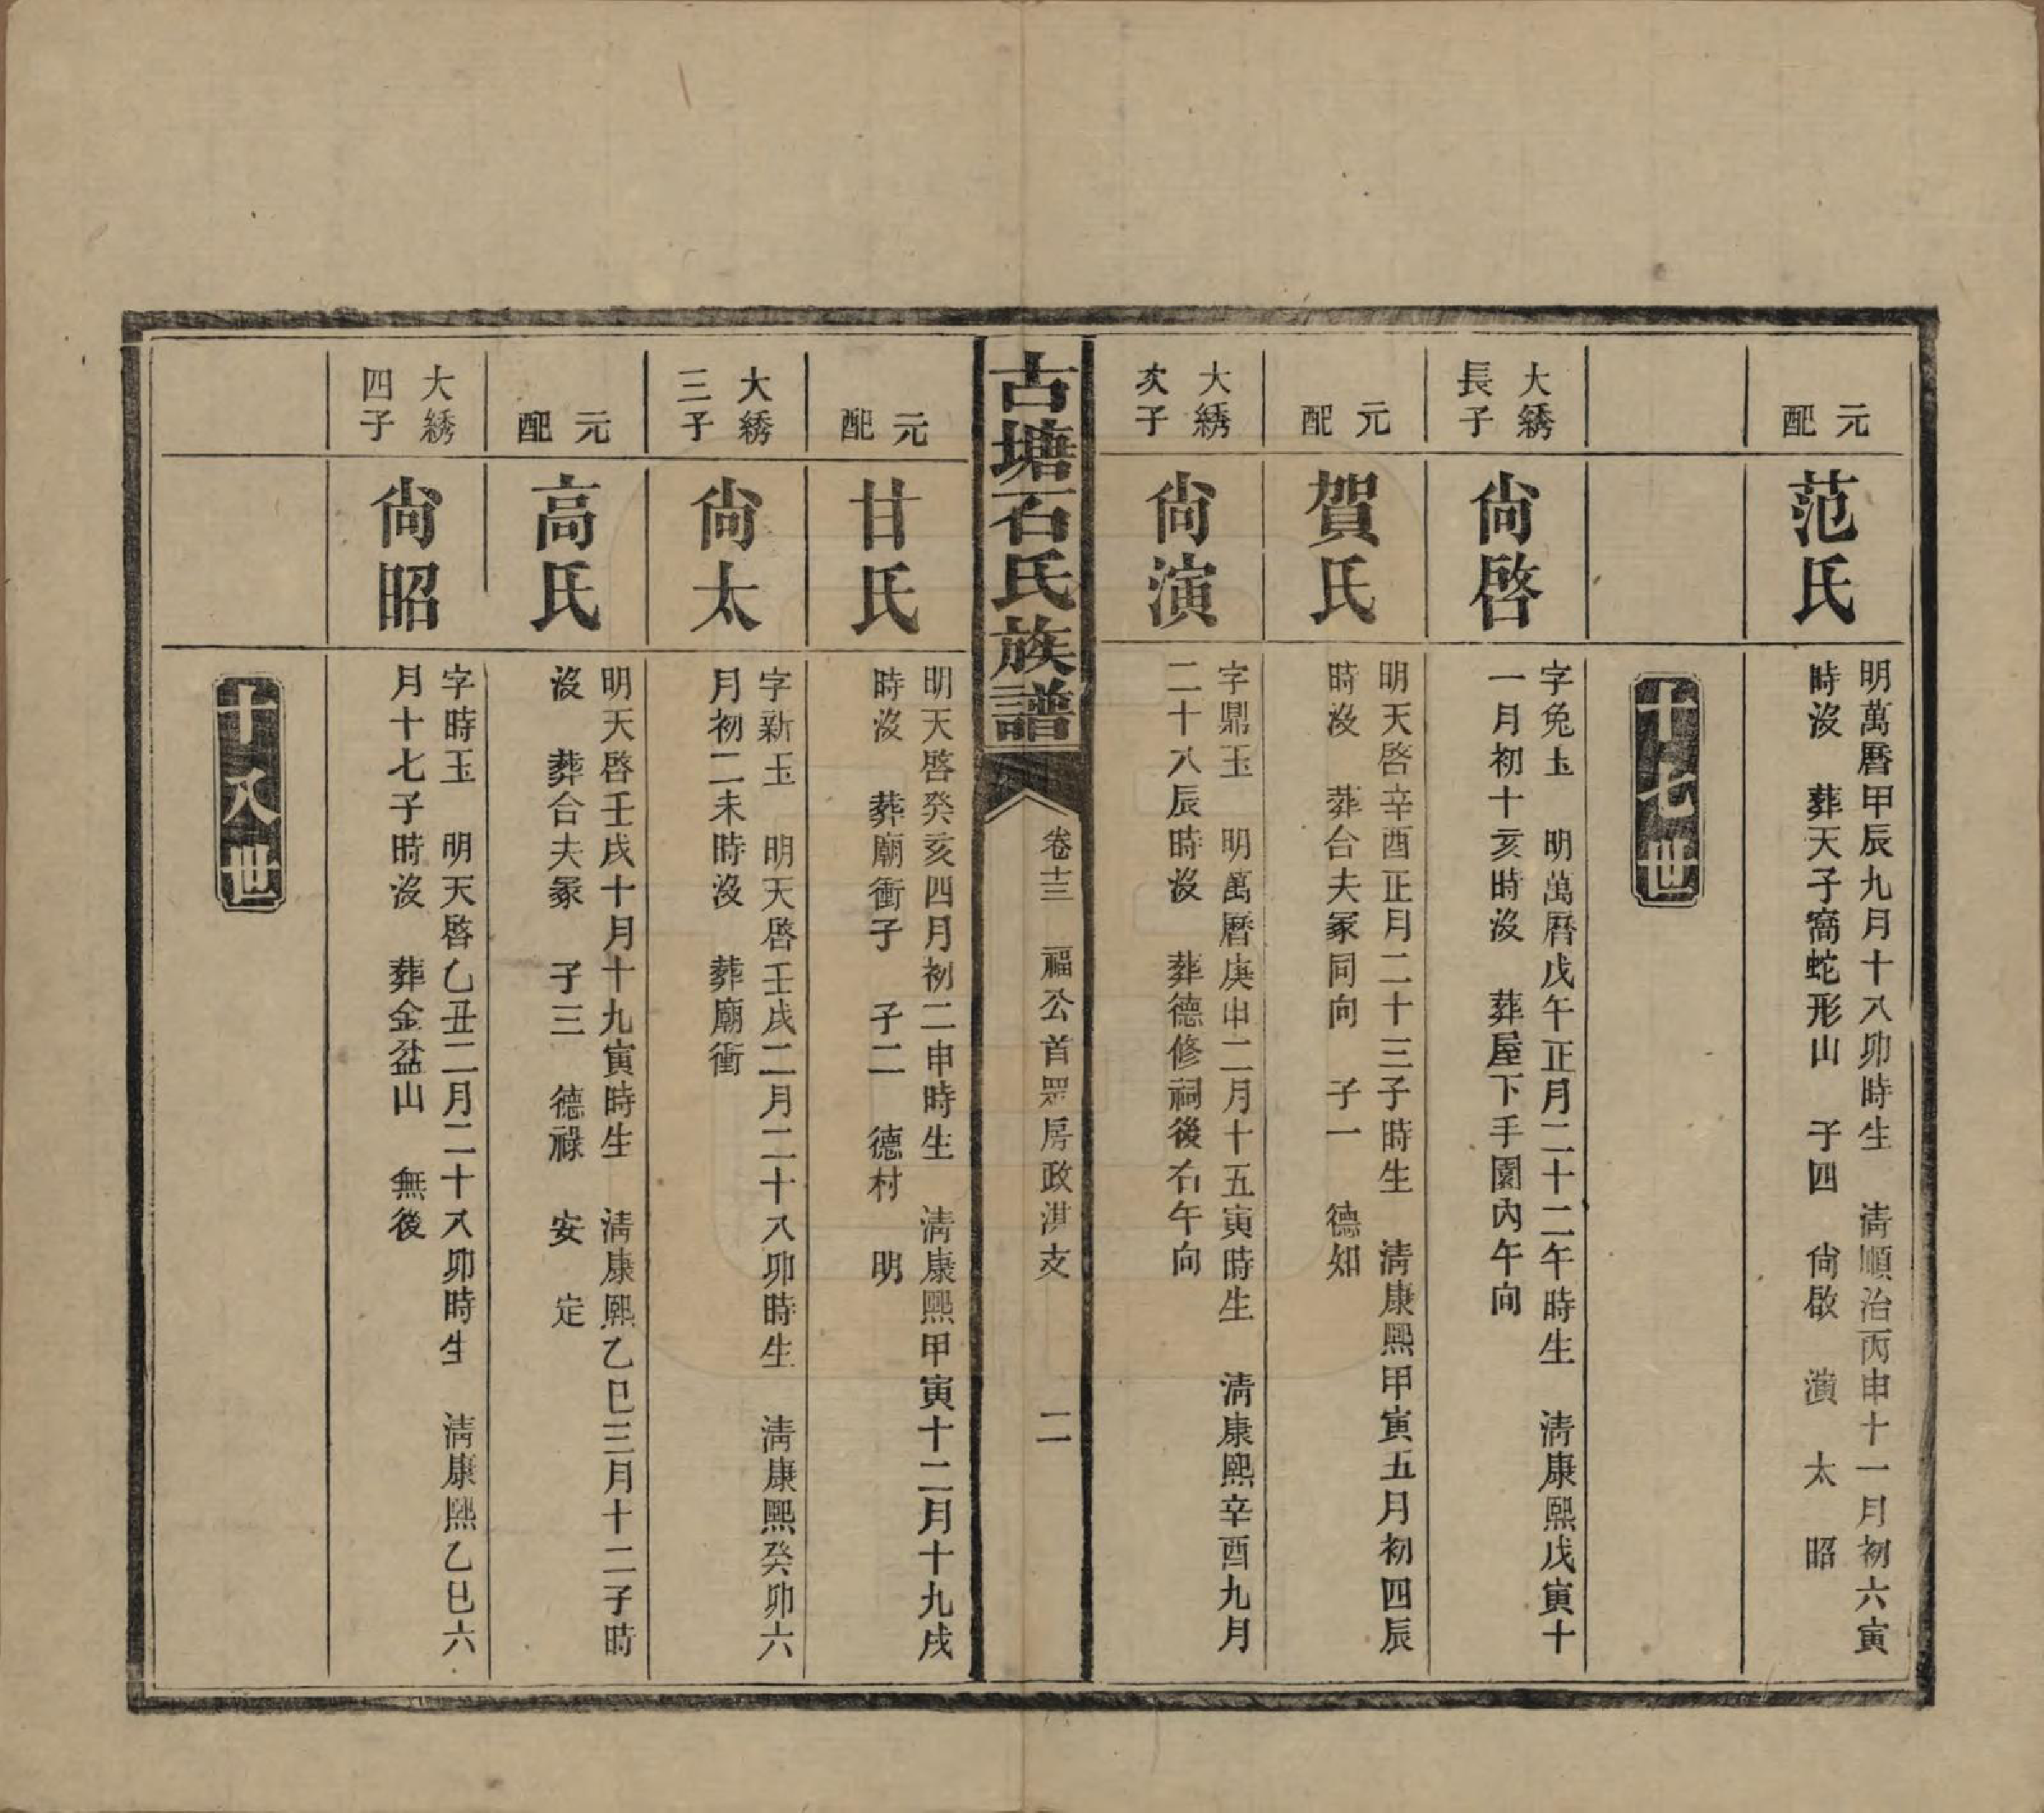 元配
范氏
明萬曆甲辰九月十八卯時生 淸順治丙申十一月初六寅
時沒 葬天子窩蛇形山 子四 尙啟 演 太 昭
十七世
大綉長子
尙啓
字兔玉 明萬曆戊午正月二十二午時生 淸康熙戊寅十
一月初十亥時沒 葬屋下手園內午向
元配
賀氏
明天啓辛酉正月二十三子時生 淸康熙甲寅五月初四辰
時沒 葬合夫冢同向 子一 德知
大綉次子
尙演
字鼎玉 明萬曆庚申二月十五寅時生 淸康熙辛酉九月
二十八辰時沒 葬德修祠後右午向
古塘石氏族譜
卷十三 福公首眾房政淇支 二
元配
甘氏
明天啓癸亥四月初二申時生 淸康熙甲寅十二月十九戌
時沒 葬廟衝子 子二 德村 明
大綉三子
尙太
字新玉 明天啓壬戌二月二十八卯時生 淸康熙癸卯六
月初二未時沒 葬廟衝
元配
高氏
明天啓壬戌十月十九寅時生 淸康熙乙巳三月十二子時
沒 葬合夫冢 子三 德祿 安 定
大綉四子
尙昭
字時玉 明天啓乙丑二月二十八卯時生 淸康熙乙巳六
月十七子時沒 葬金盆山 無後
十八世